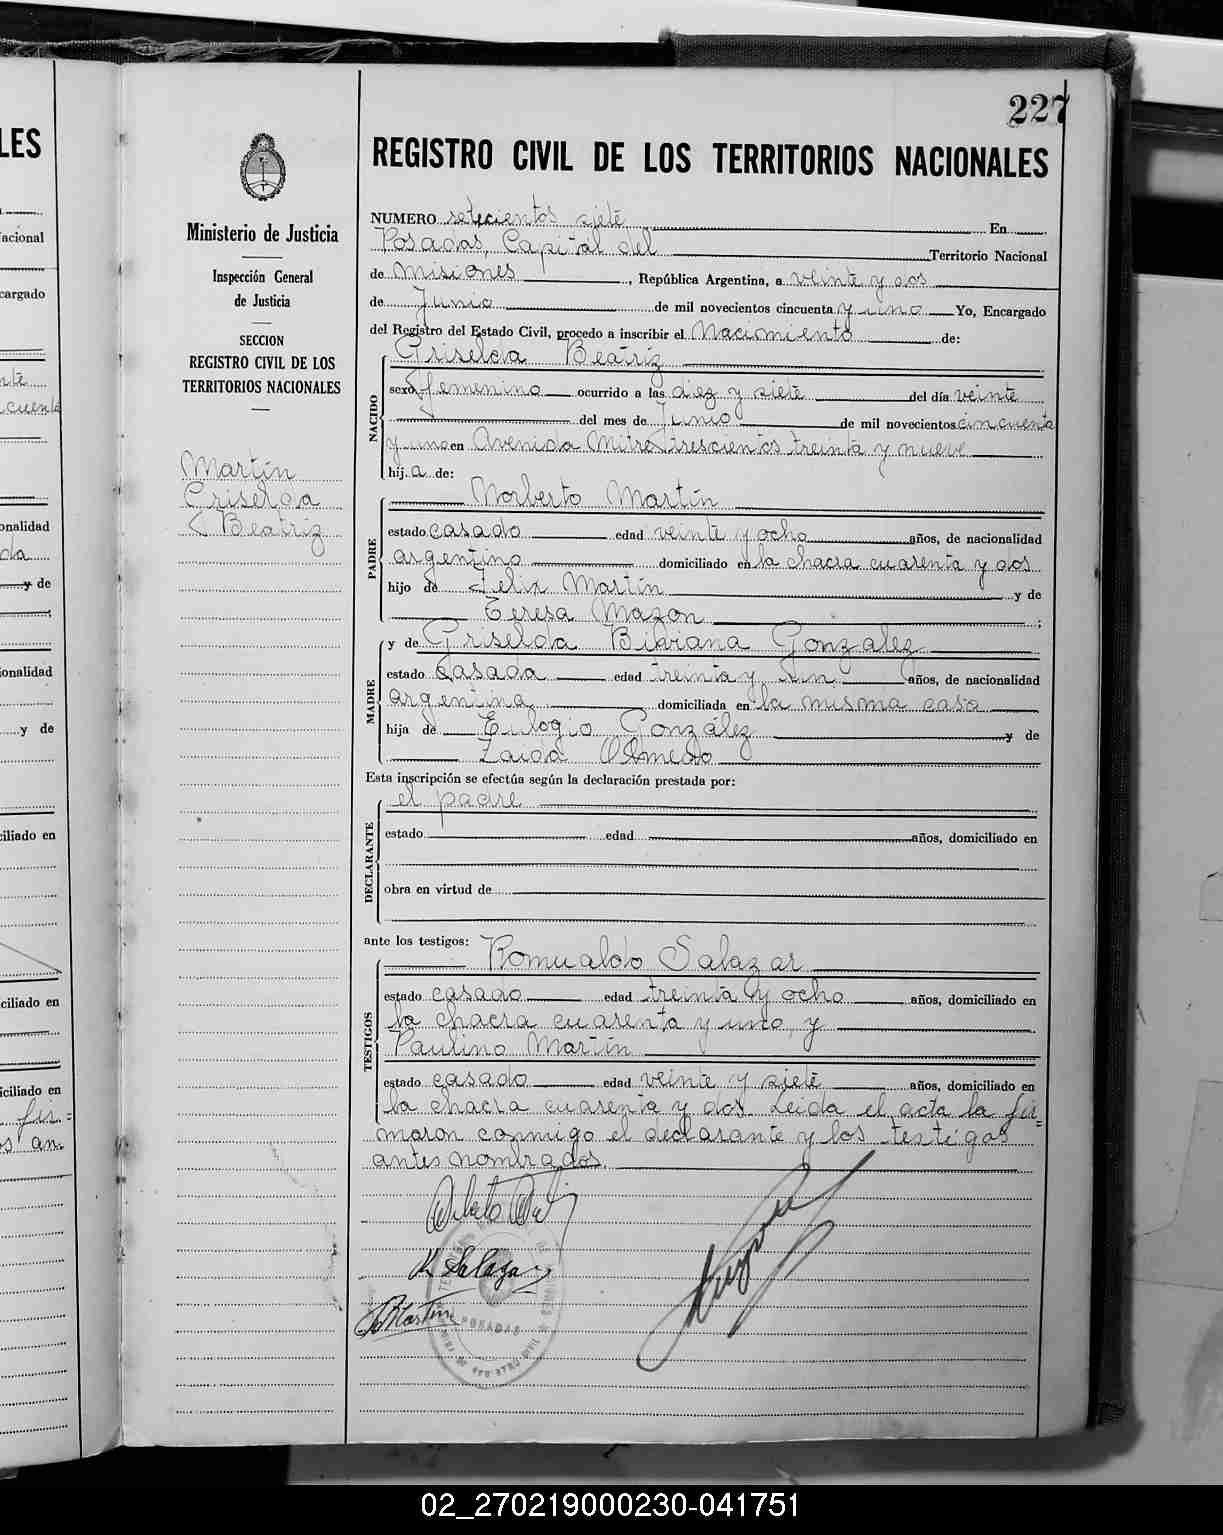 227
REGISTRO CIVIL DE LOS TERRITORIOS NACIONALES
Ministerio de Justicia
Inspección General
de Justicia
SECCION
REGISTRO CIVIL DE LOS
TERRITORIOS NACIONALES
Martín
Griselda
Beatriz
NUMERO setecientos siete En
Posadas, Capital del Territorio Nacional
de Misiones, República Argentina, a veinte y dos
de Junio de mil novecientos cincuenta y uno Yo, Encargado
del Registro del Estado Civil, procedo a inscribir el Nacimiento de:
NACIDO
Griselda Beatriz
sexo femenino ocurrido a las diez y siete del día veinte
del mes de Junio de mil novecientos cincuenta
y uno en Avenida Mitre trescientos treinta y nueve
hij a de:
PADRE
Norberto Martín
estado casado edad veinte y ocho años, de nacionalidad
argentino domiciliado en la chacra cuarenta y dos
hijo de Felix Martín y de
Teresa Mazon;
MADRE
y de Griselda Bibiana González
estado casada edad treinta y un años, de nacionalidad
argentina domiciliada en la misma casa
hija de Eulogio González y de
Zaida Olmedo
Esta inscripción se efectúa según la declaración prestada por:
DECLARANTE
el padre
estado edad años, domiciliado en
obra en virtud de
ante los testigos:
TESTIGOS
Romualdo Salazar
estado casado edad treinta y ocho años, domiciliado en
la chacra cuarenta y uno, y
Paulino Martín
estado casado edad veinte y siete años, domiciliado en
la chacra cuarenta y dos. Leida el acta la fir=
maron conmigo el declarante y los testigos
antes nombrados.
R Salazar
P Martín
POSADAS
LES
acional
cargado
cuenta
onalidad
y de
ionalidad
y de
ciliado en
ciliado en
iciliado en
fir=
os an.
02_270219000230-041751